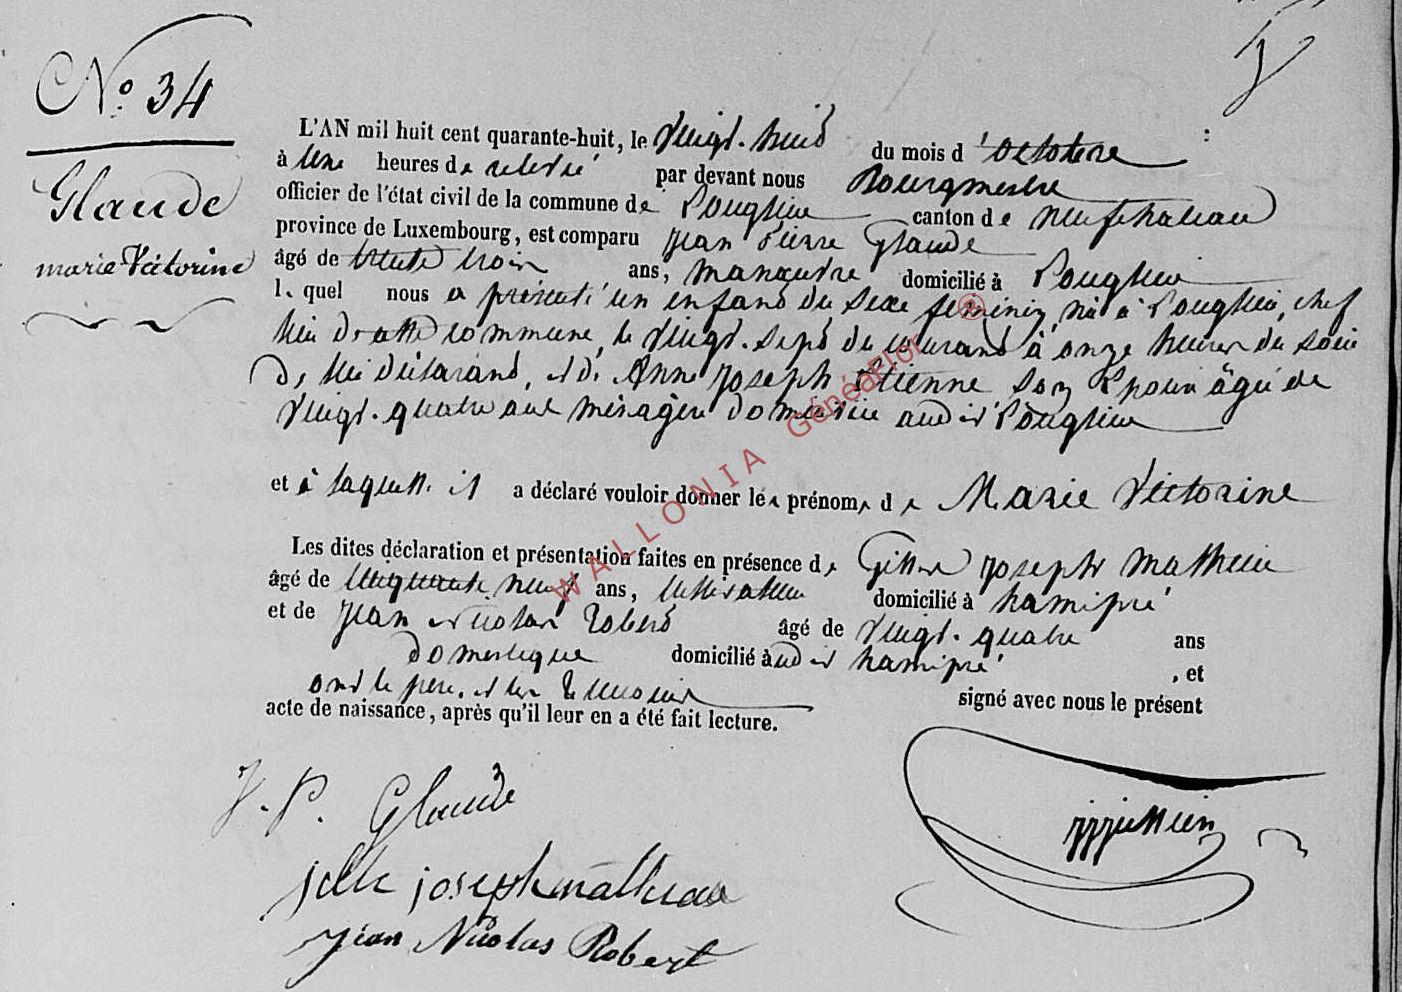 N.° 34
Glaude
marie Victorine
L'AN mil huit cent quarante-huit, le vingt-huit du mois d'octobre
à une heures de relevée par devant nous Bourgmestre
officier de l'état civil de la commune de Longlier canton de neufchateau
province de Luxembourg, est comparu Jean Pierre Glaude
âgé de trente trois ans, manœuvre domicilié à Longlier
lequel nous a présenté un enfant du sexe féminin, né à Longlier, chef
lieu de cette commune, le vingt-sept du courant à onze heures du soir
de lui déclarant, et de Anne Joseph Etienne son Epouse âgée de
vingt-quatre ans ménagère domiciliée audit Longlier
et à laquelle il a déclaré vouloir donner les prénoms de Marie Victorine
Les dites déclaration et présentation faites en présence de Joseph Mathieu
âgé de cinquante neuf ans, cultivateur domicilié à hamipré
et de Jean Nicolas Robert âgé de vingt-quatre ans
domestique domicilié audit hamipré, et
ont le père et les témoins signé avec nous le présent
acte de naissance, après qu'il leur en a été fait lecture.
J. P. Glaude
joseph mathieu
Jean Nicolas Robert
WALLONIA GénéaFlor ®